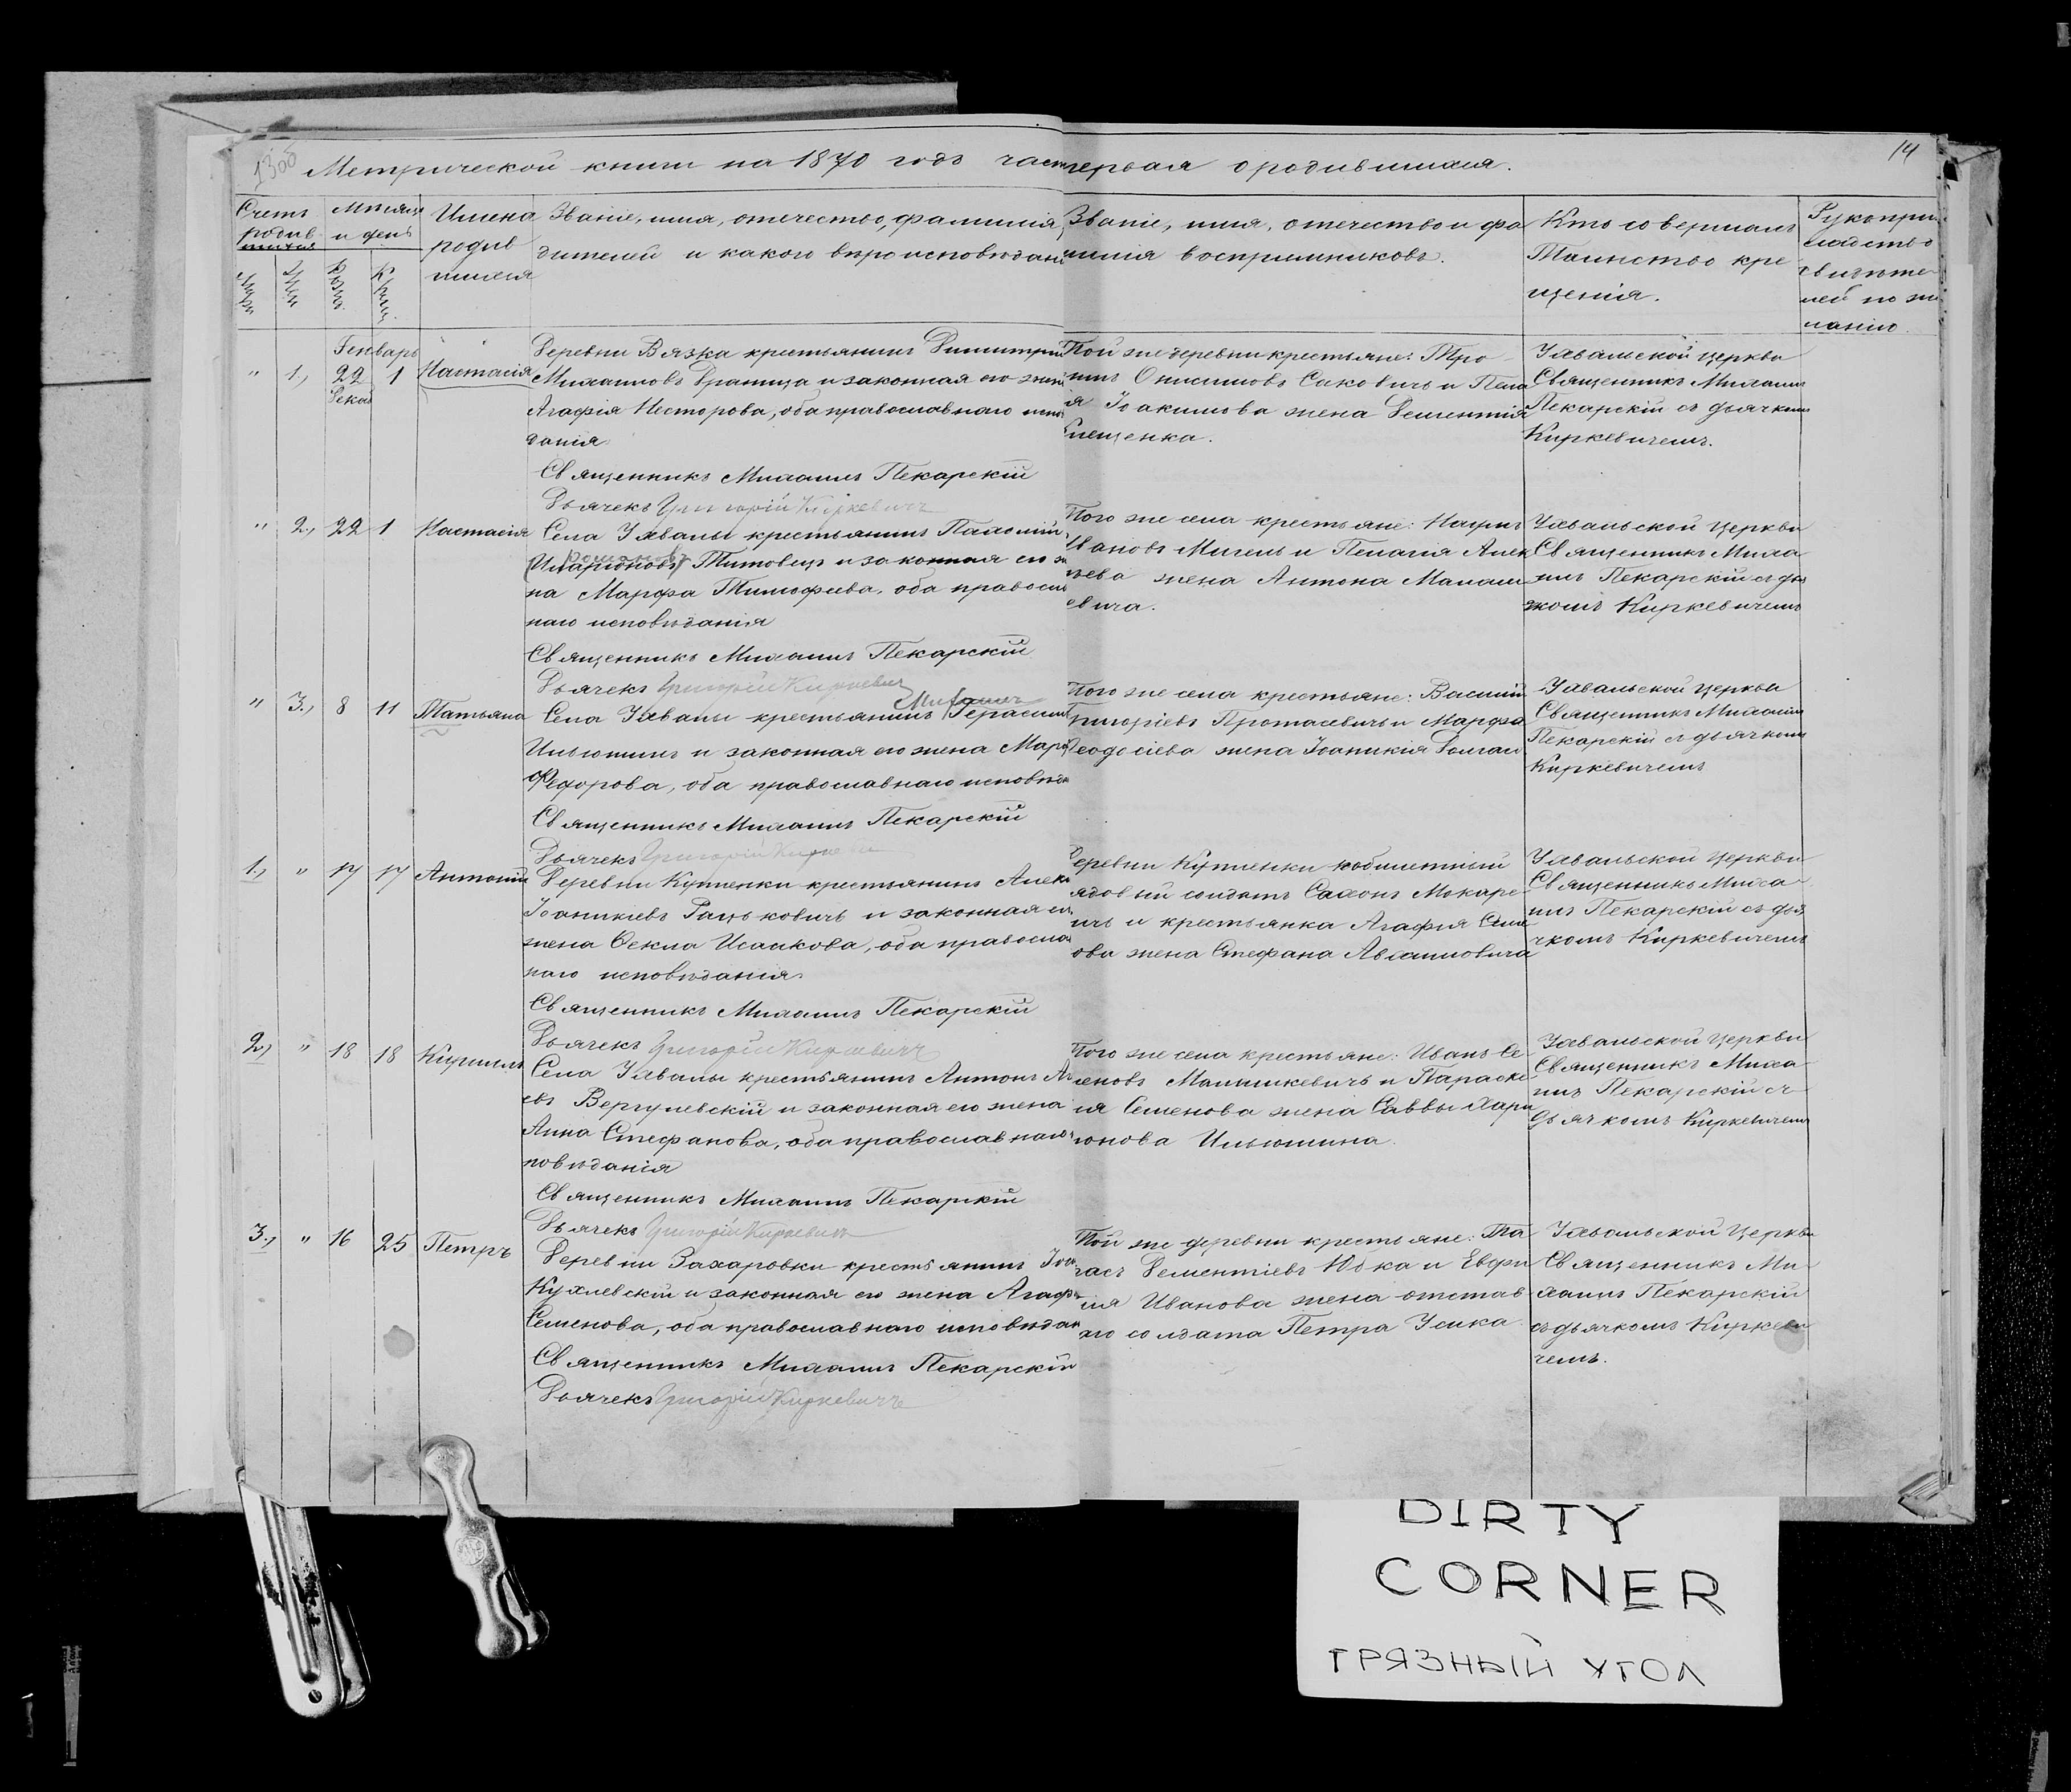 13об
14
Метрической книги на 1870 годъ част первая о родившихся.
Счетъ
родив
шихся
Мѣсяцъ
и день
Имена
родив
шихся
Званіе, имя, отечество, фамилія
дителей и какого вѣроисповѣдані
Званіе, имя, отечество и фа
милія воспріемниковъ.
Кто совершалъ
Таинство кре
щенія.
Рукопри
кладство
свидѣте
лей по же
ланію
Генварь
" 1., 22 1 Настасія
Декаб
Деревни Вязка крестьянинъ Димитрій
Михаиловъ Драница и законная его жена
Агафія Несторова, оба православнаго испо
данія
Священникъ Михаилъ Пекарскій
Дьячекъ Григорій Киркевичъ
Той же деревни крестьяне: Тро
имъ Онисимовъ Саковичъ и Пела
я Іоакимова жена Дементія
Клещенка.
Уѳвальской церкви
Священникъ Михаилъ
Пекарскій съ дьячкомъ
Киркевичемъ.
" 2., 22 1 Настасія
Села Уѳвалы крестьянинъ Пахомій
Романовъ
Иларіоновъ Титовецъ и законная его же
на Марфа Тимофеева, оба правосла
наго исповѣданія
Священникъ Михаилъ Пекарскій
Дьячекъ Григорій Киркевичъ
Того же села крестьяне:
Ивановъ и Пелагія Алек
ѣева жена Антона Малаш
евича.
Уѳвальской церкви
Священникъ Миха
илъ Пекарскій съ дья
чкомъ Киркевичемъ
" 3., 8 11 Татьяна
Села Уѳвалы крестьянинъ Герасимъ
Ильюшинъ и законная его жена Марѳ
Федорова, оба православнаго исповѣда
Священникъ Михаилъ Пекарскій
Дьячекъ Григорій Киркевичъ
Того же села крестьяне: Василій
Григоріевъ Протасевичъ и Марфа
Ѳеодосіева жена Іоаникія
Уѳвальской церкви
Священникъ Михаилъ
Пекарскій съ дьячкомъ
Киркевичемъ
1., " 17 17 Антоній
Деревни Купленки крестьянинъ Алек
Іоаникіевъ Рацьковичъ и законная ег
жена Ѳекла Исаакова, оба правосла
наго исповѣданія
Священникъ Михаилъ Пекарскій
Дьячекъ Григорій Киркевичъ
еревни Купленки
рядовый солдатъ Сахонъ Мокаре
ичъ и крестьянка Агафія Семе
ова жена Стефана Авхимовича
Уѳвальской церкви
Священникъ Миха
илъ Пекарскій съ дья
чкомъ Киркевичемъ
2., " 18 18 Кириллъ
Села Уѳвалы крестьянинъ Антонъ Ал
евъ Вергулевскій и законная его жена
Анна Стефанова, оба православнаго
повѣданія
Священникъ Михаилъ Пекарскій
Дьячекъ Григорій Киркевичъ
Того же села крестьяне: Иванъ Се
меновъ Малышкевичъ и Параске
ія Семенова жена Саввы Лари
іонова Ильюшина
Уѳвальской церкви
Священникъ Миха
илъ Пекарскій съ
дьячкомъ Киркевичемъ
3., " 16 25 Петръ
Деревни Захаровки крестьянинъ Іоа
Кухлевскій и законная его жена Агаф
Семенова, оба православнаго исповѣдан
Священникъ Михаилъ Пекарскій
Дьячекъ Григорій Киркевичъ
Той же деревни крестьяне: Та
расъ Дементіевъ Юбка и Евфи
мія Иванова жена отстав
аго солдата Петра Усика
Уѳвальской церкви
Священникъ Ми
хаилъ Пекарскій
съ дьячкомъ Киркеви
чемъ.
DIRTY
CORNER
ГРЯЗНЫЙ УГОЛ